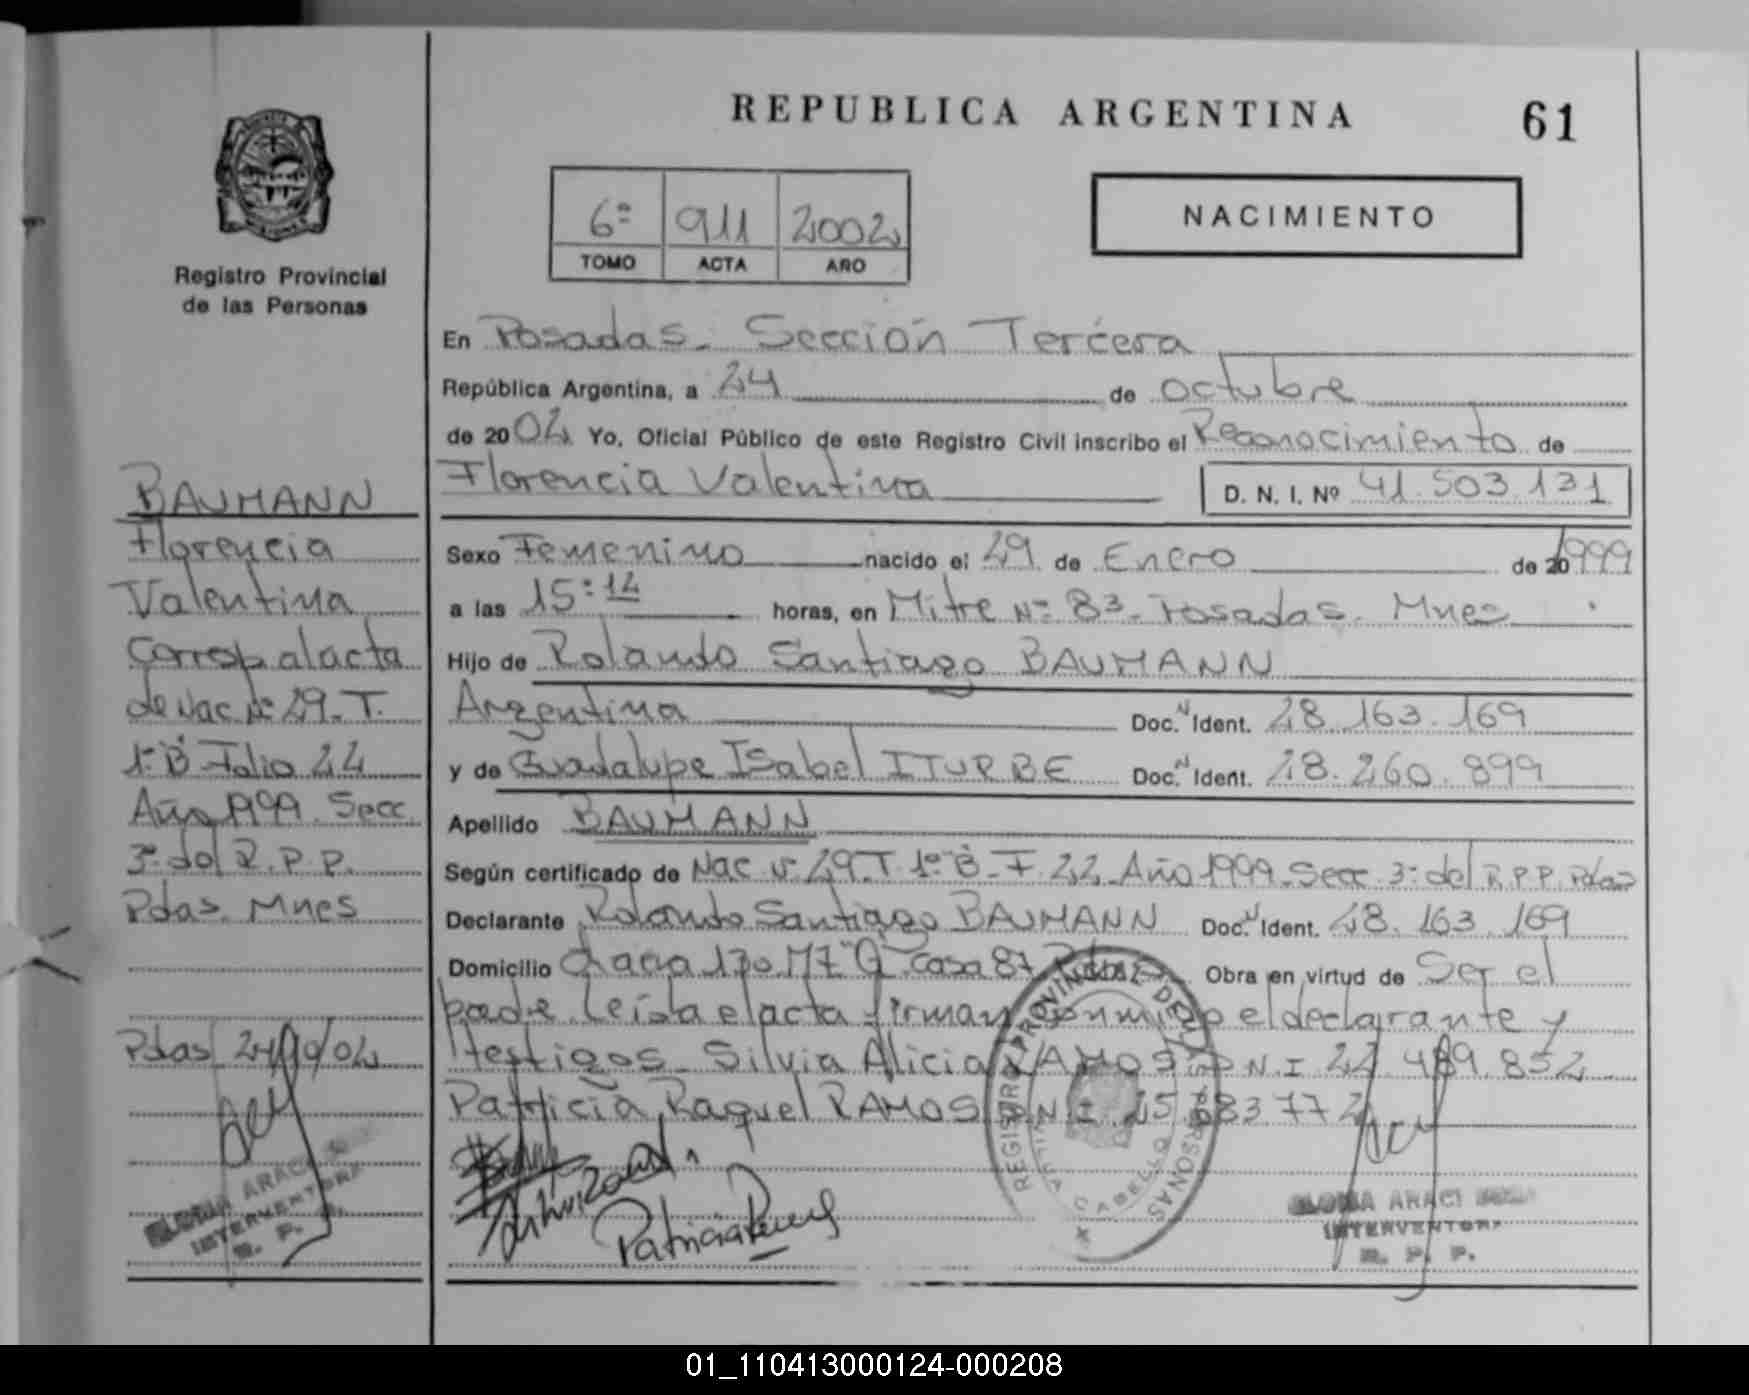 REPUBLICA ARGENTINA
61
6º 911 2002
TOMO ACTA AÑO
NACIMIENTO
Registro Provincial
de las Personas
BAUMANN
Florencia
Valentina
Corresp al acta
de Nac Nº 29. T.
1º B Folio 22
Año 1999. Secc.
3º del R.P.P.
Pdas. Mnes
Pdas 24/10/02
INTERVENTORA
R. P. P.
En Posadas. Sección Tercera
República Argentina, a 24 de octubre
de 2002 Yo, Oficial Público de este Registro Civil inscribo el Reconocimiento de
Florencia Valentina D. N. I. Nº 41.503.131
Sexo Femenino nacido el 29 de Enero de 20 1999
a las 15:12 horas, en Mitre Nº 83. Posadas. Mnes
Hijo de Rolando Santiago BAUMANN
Argentina Doc. N Ident. 28.163.169
y de Guadalupe Isabel ITURBE Doc. N Ident. 28.260.899
Apellido BAUMANN
Según certificado de Nac Nº 29. T 1º B. F. 22 Año 1999. Secc 3º del R.P.P. Pdas
Declarante Rolando Santiago BAUMANN Doc. N Ident. 28.163.169
Domicilio Chacra 170 Mz "G" casa 87 Pdas. Obra en virtud de Ser el
padre. Leída el acta firman conmigo el declarante y
testigos. Silvia Alicia RAMOS D.N.I 22.489.852
Patricia Raquel RAMOS D.N.I. 25.283772
REGISTRO PROVINCIAL DE LAS PERSONAS
CABELLO
Patricia
ARACI
INTERVENTORA
R. P. P.
01_110413000124-000208